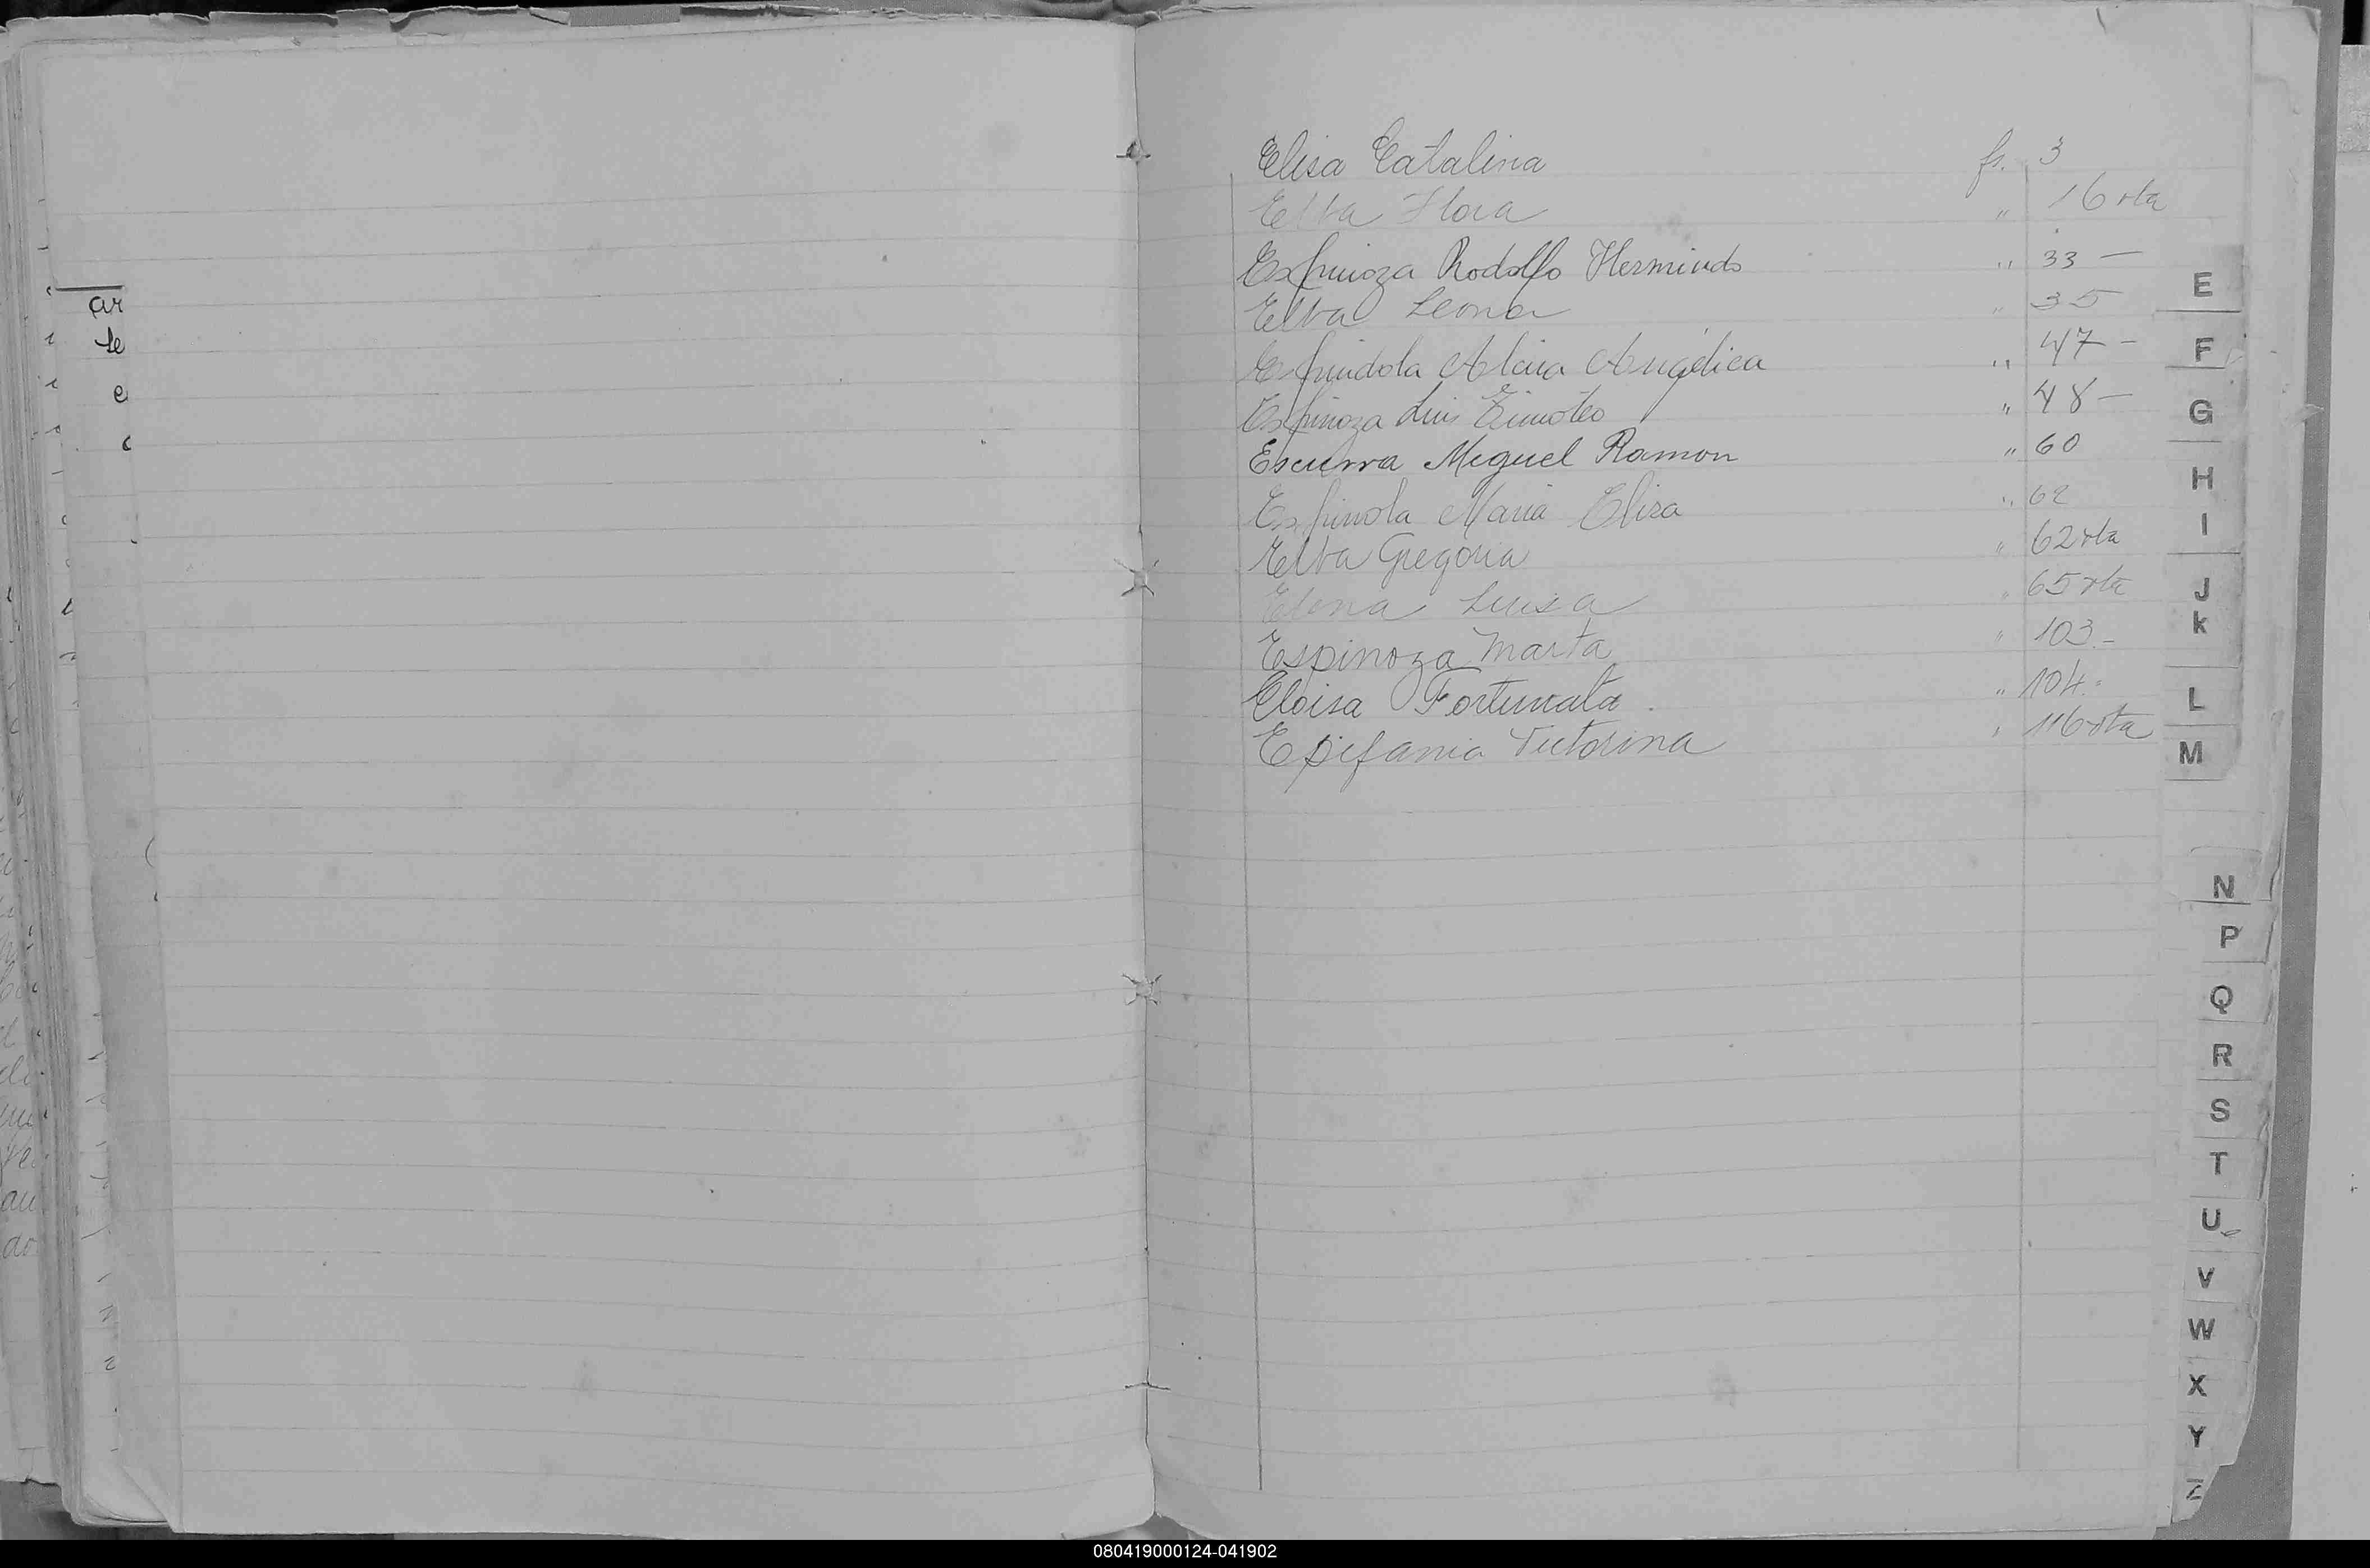 ar
le
e
Elisa Catalina fs. 3
Elba Flora " 16 vta
Espinoza Rodolfo Hermindo " 33 —
Elba Leona " 35
Espindola Alcira Angélica " 47 -
Espinoza Luis Timoteo " 48 —
Escurra Miguel Ramon " 60
Espinola Maria Elisa " 62
Elba Gregoria " 62 vta
Elena Luisa " 65 vta
Espinoza Marta " 103 -
Eloisa Fortunata . " 104 -
Epifania Victorina " 116 vta
E
F
G
H
I
J
k
L
M
N
P
Q
R
S
T
U
V
W
X
Y
Z
080419000124-041902